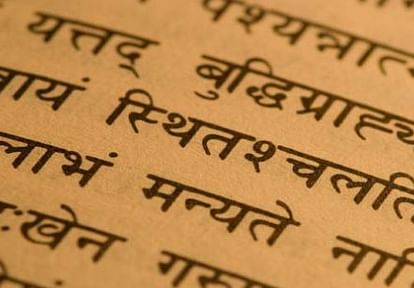 पश्यन्नात्
यत्तद् बुद्धिग्राह्य
वायं स्थितश्चलति
लाभं मन्यते ना
ःखेन